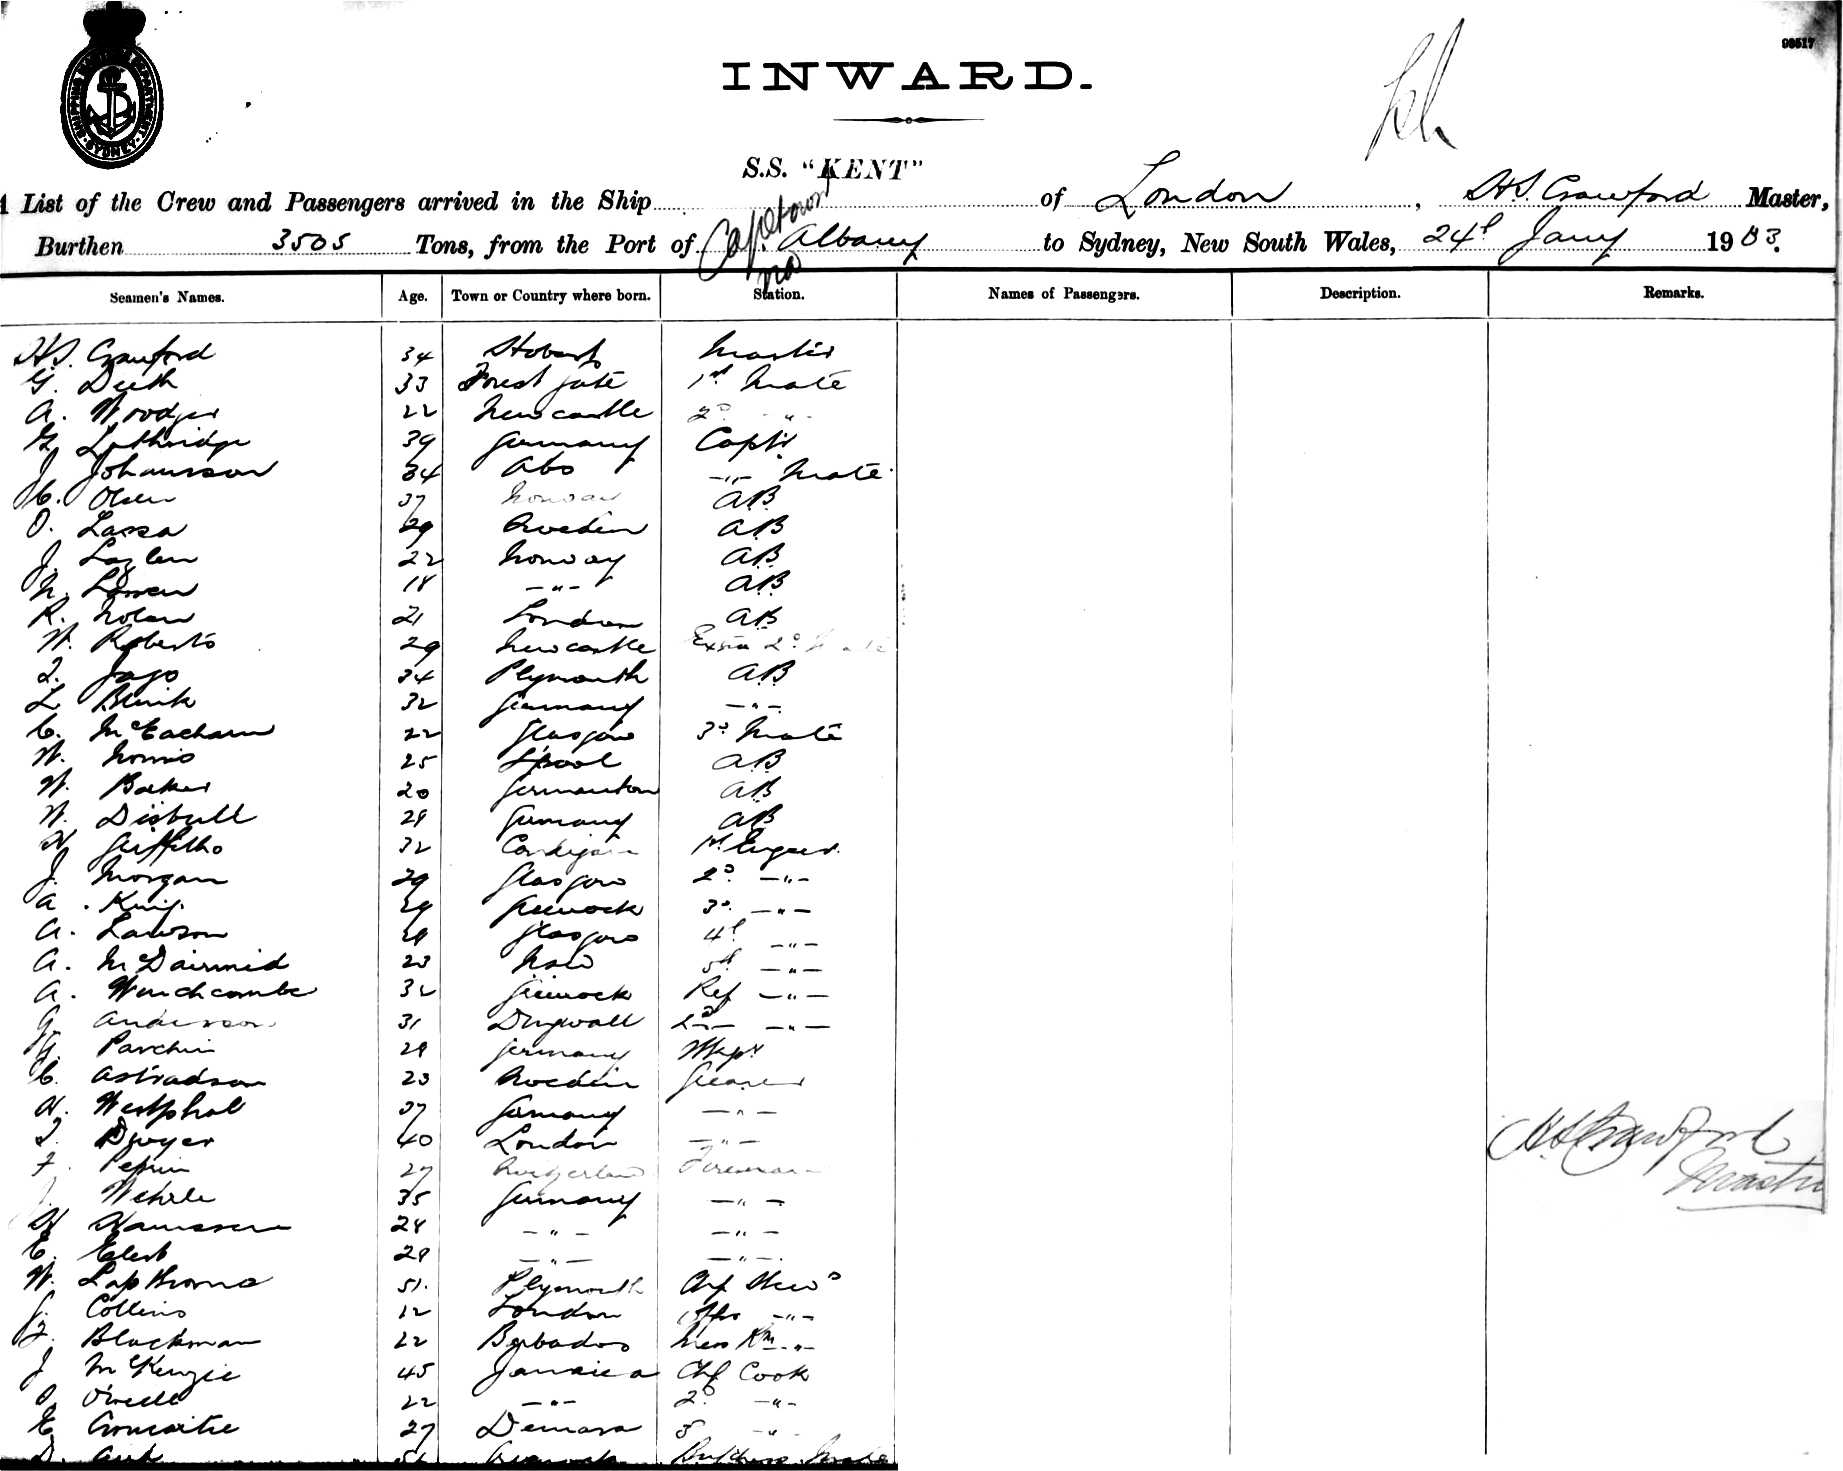 SHIPPING MASTERS DEPARTMENT
SYDNEY
90517
INWARD.
S.S. "KENT"
List of the Crew and Passengers arrived in the Ship of London, H.S. Crawford Master,
Burthen 3505 Tons, from the Port of Capetown Albany to Sydney, New South Wales, 24th Jany 1903.
Seamen's Names. Age. Town or Country where born. Station. Names of Passengers. Description. Remarks.
H.S. Crawford 34 Hobart Master
G. Deeth 33 Forest Gate 1st Mate
A. Woodger 22 Newcastle 2d -"-
G. Lethridge 39 Germany Carptr
J. Johansson 34 Abo -"- Mate
C. Olsen 37 Norway A.B
O. Lassa 29 Sweden A.B
J. 22 Norway A.B
N. Larsen 18 -"- A.B
R. Nolan 21 London A.B
W. Roberts 29 Newcastle Extra 2d Mate
Jago 34 Plymouth A.B
L Blink 32 Germany -"-
C. McEacharn 22 Glasgow 3d Mate
W. Norris 25 L'pool A.B
W. Barker 20 Germanton A.B
W. Disbull 29 Germany A.B
H Griffiths 32 Cardigan 1st Engeer.
J. Morgan 29 Glasgow 2d -"-
A. King. 29 Greenock 3d -"-
A. Lawson 29 Glasgow 4th -"-
A. McDairmid 23 5th -"-
A. Winchcombe 32 Greenock Ref -"-
G. Anderson 31 Dingwall 2d -"-
G. Parchin 29 Germany
C. Astradson 23 Sweden Greaser
H. Westphal 37 Germany -"-
J. Dwyer 40 London -"-
F. Pepin 27 Switzerland Fireman
J. Wehrle 35 Germany -"-
H Hanssen 24 -"- -"-
E. Elert 29 -"- -"-
W. Lapthorne 51. Plymouth Chf Stewd
J. Collins London -"-
J. Blackman 22 Barbados Mess Rm -"-
J McKenzie 45 Jamaica Chf Cook
O'Neill 22 -"- 2d -"-
E Cromartie 27 Demara 3 -"-
H.S. Crawford
Master